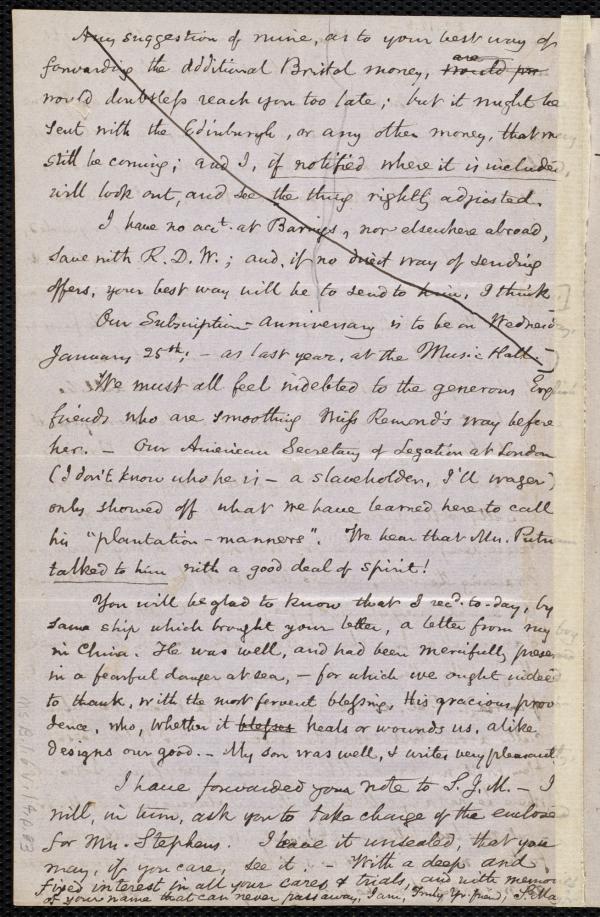 Any suggestion of mine, as to your best way of
forwarding the additional Bristol money, are
would doubtless reach you too late; but it might be
sent with the Edinburgh, or any other money, that may
still be coming; and I, if notified where it is included,
will look out, and see the thing rightly adjusted.
I have no acct. at Barings, nor elsewhere abroad,
save with R. D. W.; and, if no direct way of sending
offers, your best way will be to send to him, I think.
Our Subscription-Anniversary is to be on Wednes
January 25th; - as last year, at the Music Hall.
We must all feel indebted to the generous Eng
friends who are smoothing Miss Remond's way before
her. - Our American Secretary of Legation at London
(I don't know who he is - a slaveholder, I'll wager)
only showed off what we have learned here to call
his "plantation-manners". We hear that Mrs. Putn
talked to him with a good deal of spirit!
You will be glad to know that I recd. to-day, by
same ship which brought your letter, a letter from my
in China. He was well, and had been mercifully preser
in a fearful danger at sea, - for which we ought indeed
to thank, with the most fervent blessing, His gracious prov
dence, who, whether it blesses heals or wounds us, alike
designs our good. - My son was well, & writes very pleasant
I have forwarded your note to S. J. M. - I
will, in turn, ask you to take charge of the enclose
for Mrs. Stephens. I leave it unsealed, that you
may, if you care, see it. - With a deep and
fixed interest in all your cares & trials, and with memor
of your name that can never pass away, I am, Truly Yr. friend, S. May
Ms.B.1.6 V.7,